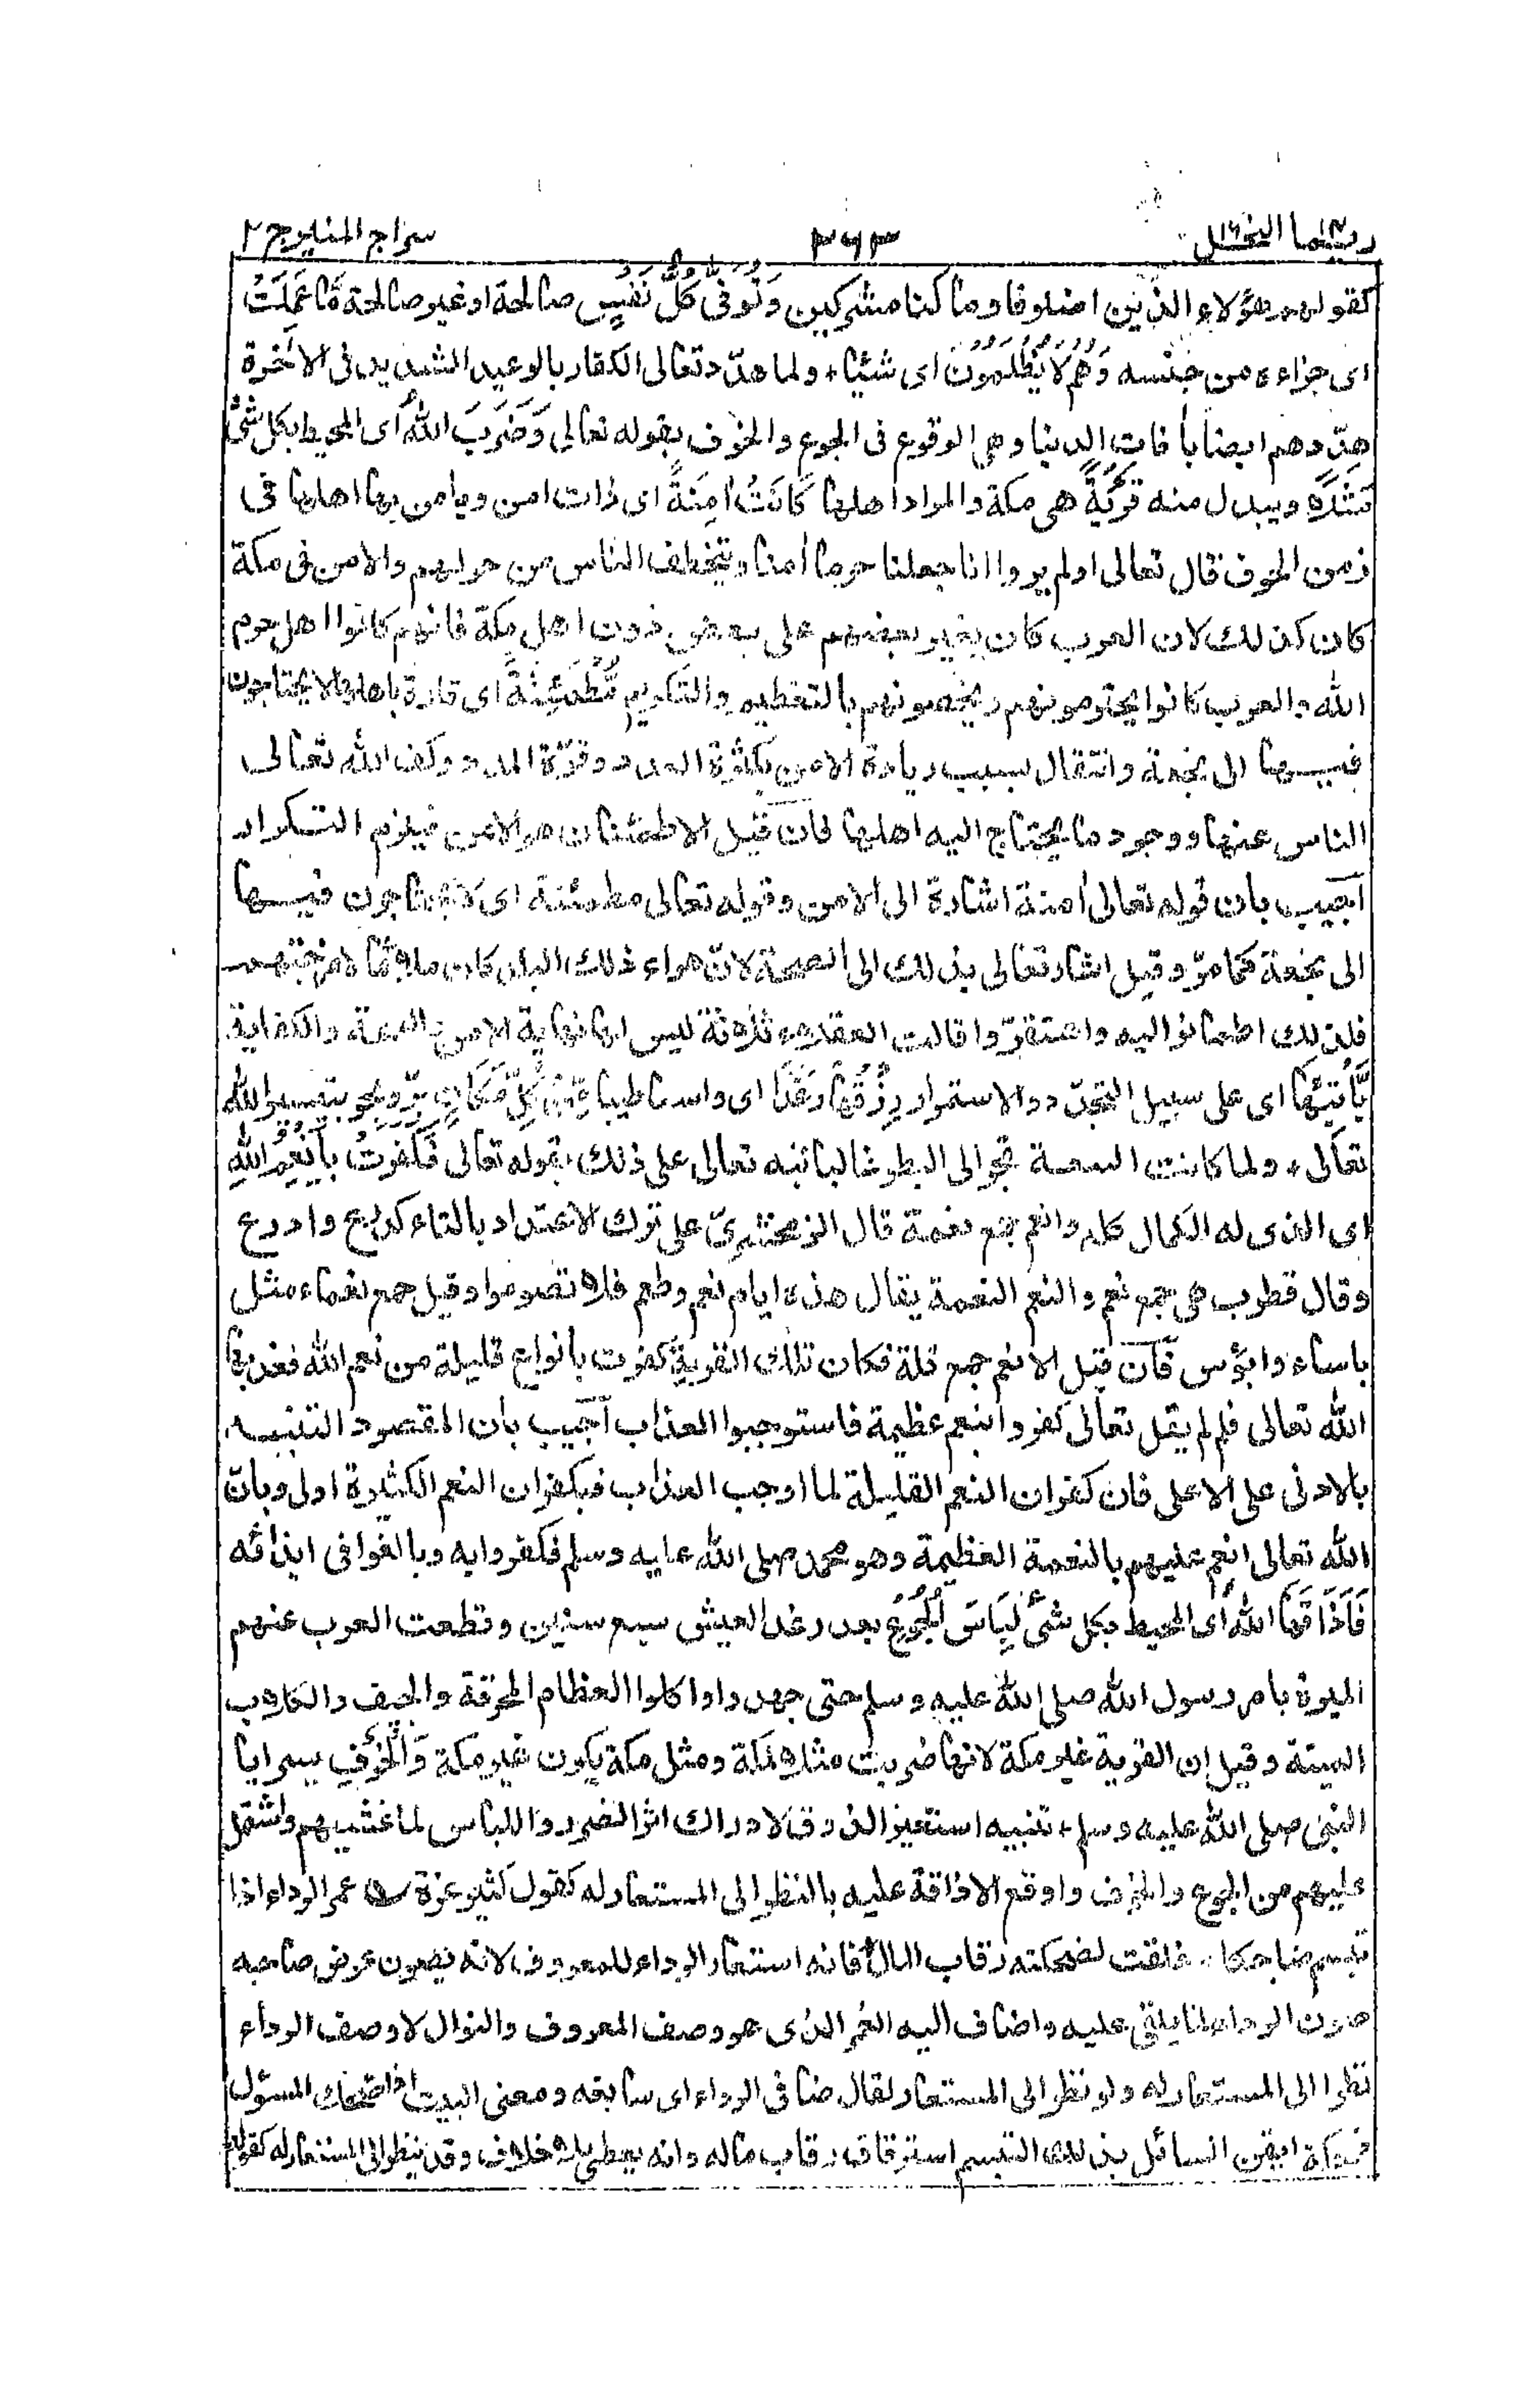 ربما١٤ النحل١٦ ٣٦٣ سراج المنير ج ٢
كقولهم هؤلاء الذين اضلونا وما كنا مشركين وَتُوَفّٰى كُلُّ نَفْسٍ صالحة او غير صالحة مَّا عَمِلَتْ
اى جزاءه من جنسه وَهُمْ لَا يُظْلَمُوْنَ اى شيئا ولما هدّد تعالى الكفار بالوعيد الشديد فى الاٰخرة
هدّدهم ايضا باٰفات الدنيا وهى الوقوع فى الجوع والخوف بقوله تعالى وَضَرَبَ اللّٰهُ اى المحيط بكل شئ
مَثَلًا ويبدل منه قَرْيَةً هى مكة والمراد اهلها كَانَتْ اٰمِنَةً اى ذات امن ويامن بها اهلها فى
زمن الخوف قال تعالى اولم يروا انا جعلنا حرما اٰمنا ويتخطف الناس من حولهم والامن فى مكة
كان كذلك لان العرب كان يغير بعضهم على بعض دون اهل مكة فانهم كانوا اهل حرم
الله والعرب كانوا يحترمونهم ويخصونهم بالتعظيم والتكريم مُّطْمَئِنَّةً اى قارة باهلها لا يحتاجون
فيها الى نجعة وانتقال بسبب زيادة الامن بكثرة العدد وقوّة المدد وكف الله تعالى
الناس عنها ووجود ما يحتاج اليه اهلها فان قيل الاطمئنان هو الامن فيلزم التكرار
اجيب بان قوله تعالى اٰمنة اشارة الى الامن وقوله تعالى مطمئنة اى لا يحتاجون فيها
الى نجعة كما مرّ وقيل اشار تعالى بذلك الى الصحة لانّ هواء ذلك البلد كان ملائما لامزجتهم
فلذلك اطمانوا اليه واستقرّوا قالت العقلاء ثلاثة ليس لها نهاية الامن والصحة والكفاية
يَّاْتِيْهَا اى على سبيل التجدّد والاستمرار رِزْقُهَا رَغَدًا اى واسعا طيبا مِّنْ كُلِّ مَكَانٍ برّ وبحر بتيسير الله
تعالى ولما كانت السعة تجر الى البطر غالبا نبه تعالى على ذلك بقوله تعالى فَكَفَرَتْ بِاَنْعُمِ اللّٰهِ
اى الذى له الكمال كله وانعم جمع نعمة قال الزمخشرىّ على ترك الاعتداد بالتاء كدرع وادرع
وقال قطرب هى جمع نعم والنعم النعمة يقال هذه ايام نعم وطعم فلا تصوموا وقيل جمع نعماء مثل
باساء وابؤس فان قيل الانعم جمع قلة فكان تلك القرية كفرت بانواع قليلة من نعم الله فعذبها
الله تعالى فلم لم يقل تعالى كفروا بنعم عظيمة فاستوجبوا العذاب اجيب بان المقصود التنبيه
بالادنى على الاعلى فان كفران النعم القليلة لما اوجب العذاب فبكفران النعم الكثيرة اولى وبانّ
الله تعالى انعم عليهم بالنعمة العظيمة وهو محمد صلى الله عليه وسلم فكفروا به وبالغوا فى ايذائه
فَاَذَاقَهَا اللّٰهُ اى المحيط بكل شئ لِبَاسَ الْجُوْعِ بعد رغد العيش سبع سنين وقطعت العرب عنهم
الميرة بامر رسول الله صلى الله عليه وسلم حتى جهدوا واكلوا العظام المحرقة والجيف والكلاب
الميتة وقيل ان القرية غير مكة لانها ضربت مثلا لمكة ومثل مكة يكون غير مكة وَالْخَوْفِ بسرايا
النبى صلى الله عليه وسلم تنبيه استعير الذوق لادراك اثر الضرر واللباس لما غشيهم واشتمل
عليهم من الجوع والخوف واوقع الاذاقة عليه بالنظر الى المستعار له كقول كثير عزة غمر الرداء اذا
تبسم ضاحكا غلقت لضحكته رقاب المال فانه استعار الرداء للمعروف لانه يصون عرض صاحبه
صون الرداء لما يلقى عليه واضاف اليه الغمر الذى هو وصف المعروف والنوال لا وصف الرداء
نظرا الى المستعار له ولو نظر الى المستعار لقال ضافى الرداء اى سابغه ومعنى البيت اذا ضحك المسئول
ضحكة ايقن السائل بذلك التبسم استرقاق رقاب ماله وانه يعطى بلا خلاف وقد ينظر الى المستعار له كقوله